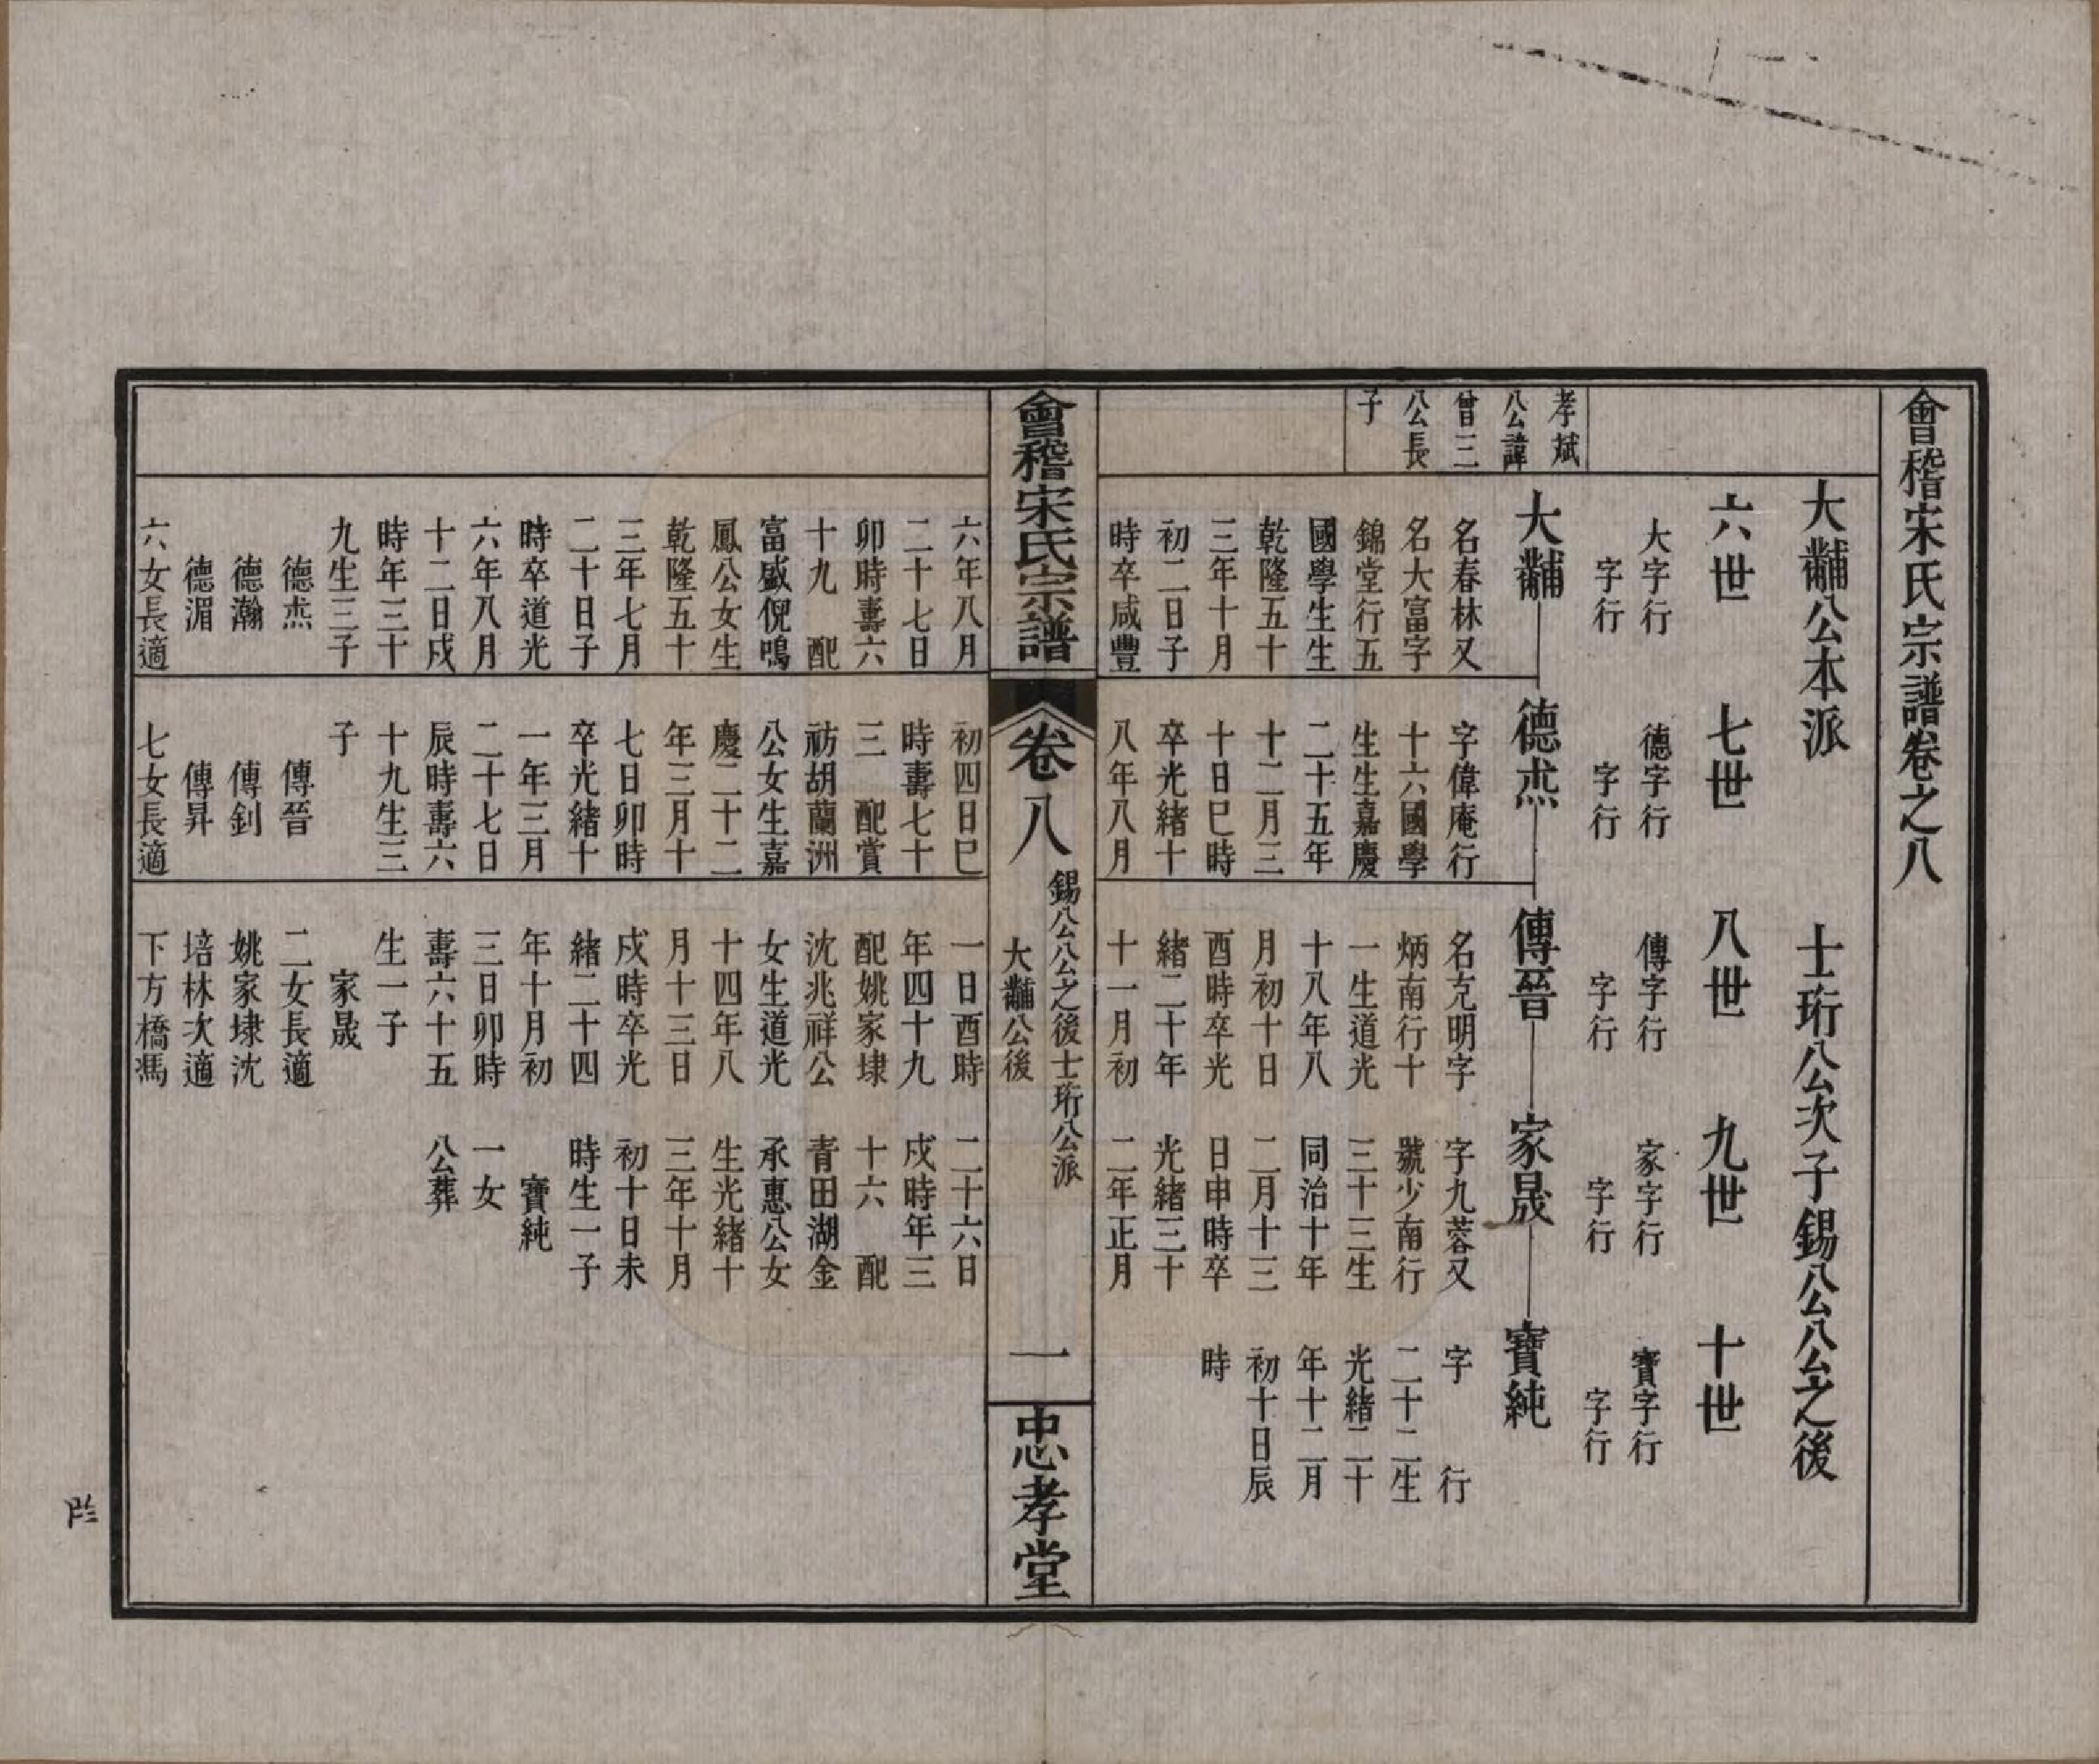 會稽宋氏宗譜卷之八
大黼公本派
士珩八公次子錫公八公之後
六世
七世
八世
九世
十世
大字行
字行
德字行
字行
傳字行
字行
家字行
字行
寶字行
字行
孝斌
公諱
曾三
公長
子
大黼
德杰
傳晉
家晟
寶純
名春林又
名大富字
錦堂行五
國學生生
乾隆五十
三年十月
初二日子
時卒咸豐
字偉庵行
十六國學
生生嘉慶
二十五年
十二月三
十日巳時
卒光緒十
八年八月
名克明字
炳南行十
一生道光
十八年八
月初十日
酉時卒光
緒二十年
十一月初
字九蓉又
號少南行
三十三生
同治十年
二月十三
日申時卒
光緒三十
二年正月
字 行
二十二生
光緒二十
年十二月
初十日辰
時
會稽宋氏宗譜
卷八
錫公八公之後士珩公派
大黼公後
一
忠孝堂
六年八月
二十七日
卯時壽六
十九 配
富盛倪鳴
鳳公女生
乾隆五十
三年七月
二十日子
時卒道光
六年八月
十二日戌
時年三十
九生三子
德杰
德瀚
德湄
六女長適
初四日巳
時壽七十
三 配賞
祊胡蘭洲
公女生嘉
慶二十二
年三月十
七日卯時
卒光緒十
一年三月
二十七日
辰時壽六
十九生三
子
傳晉
傳釗
傳昇
七女長適
一日酉時
年四十九
配姚家埭
沈兆祥公
女生道光
十四年八
月十三日
戌時卒光
緒二十四
年十月初
三日卯時
壽六十五
生一子
家晟
二女長適
姚家埭沈
培林次適
下方橋馮
二十六日
戌時年三
十六 配
青田湖金
承惠公女
生光緒十
三年十月
初十日未
時生一子
寶純
一女
公葬